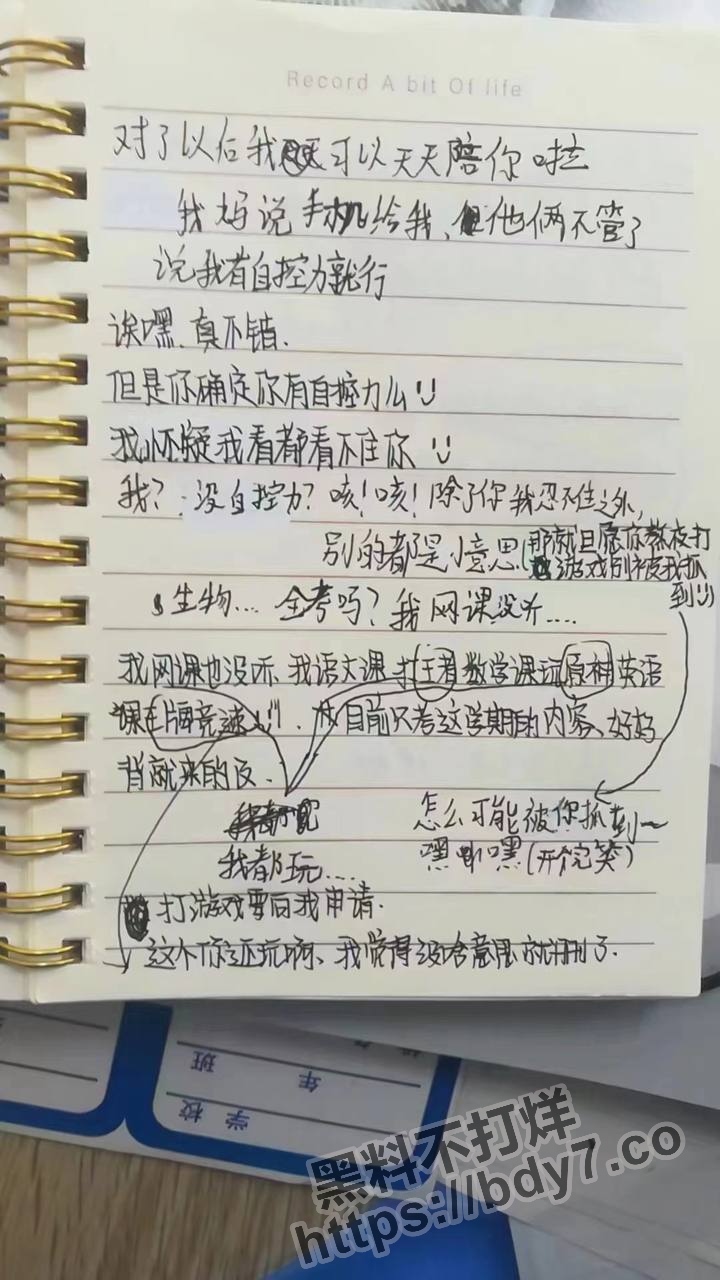 Record A bit Of life
对了以后我可以天天陪你啦
我妈说手机给我、他俩不管了
说我有自控力就行
诶嘿、真不错.
但是你确定你有自控力么
我怀疑我看都看不住你
我？：没自控力？咳！咳！除了你我忍不住之外，
别的都是小意思(那就但愿你熬夜打
游戏别被我抓
到)
生物… 全考吗？我网课没听….
我网课也没听、我语文课打王者数学课玩原神英语
课王牌竞速、目前只考这学期的内容、好好
背就来的及.
怎么可能被你抓到~
我都玩….
嘿嘿(开个玩笑)
打游戏要向我申请.
这个你还玩啊、我觉得没啥意思就删了.
学校
年
班
黑料不打烊
https://bdy7.co